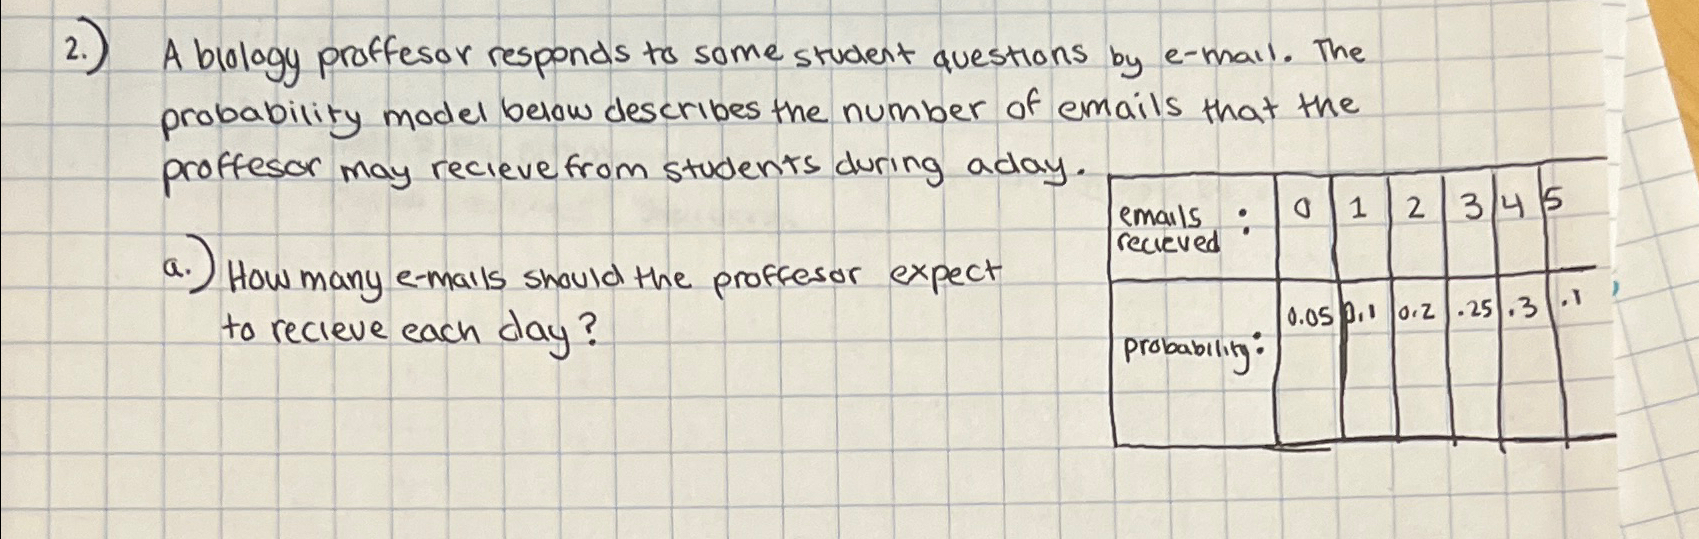 2.) A biology proffesor responds to some student questions by e-mail. The
probability model below describes the number of emails that the
proffesor may recieve from students during a day.
emails : 0 1 2 3 4 5
recieved
probability: 0.05 0.1 0.2 .25 .3 .1
a.) How many e-mails should the proffesor expect
to recieve each day?